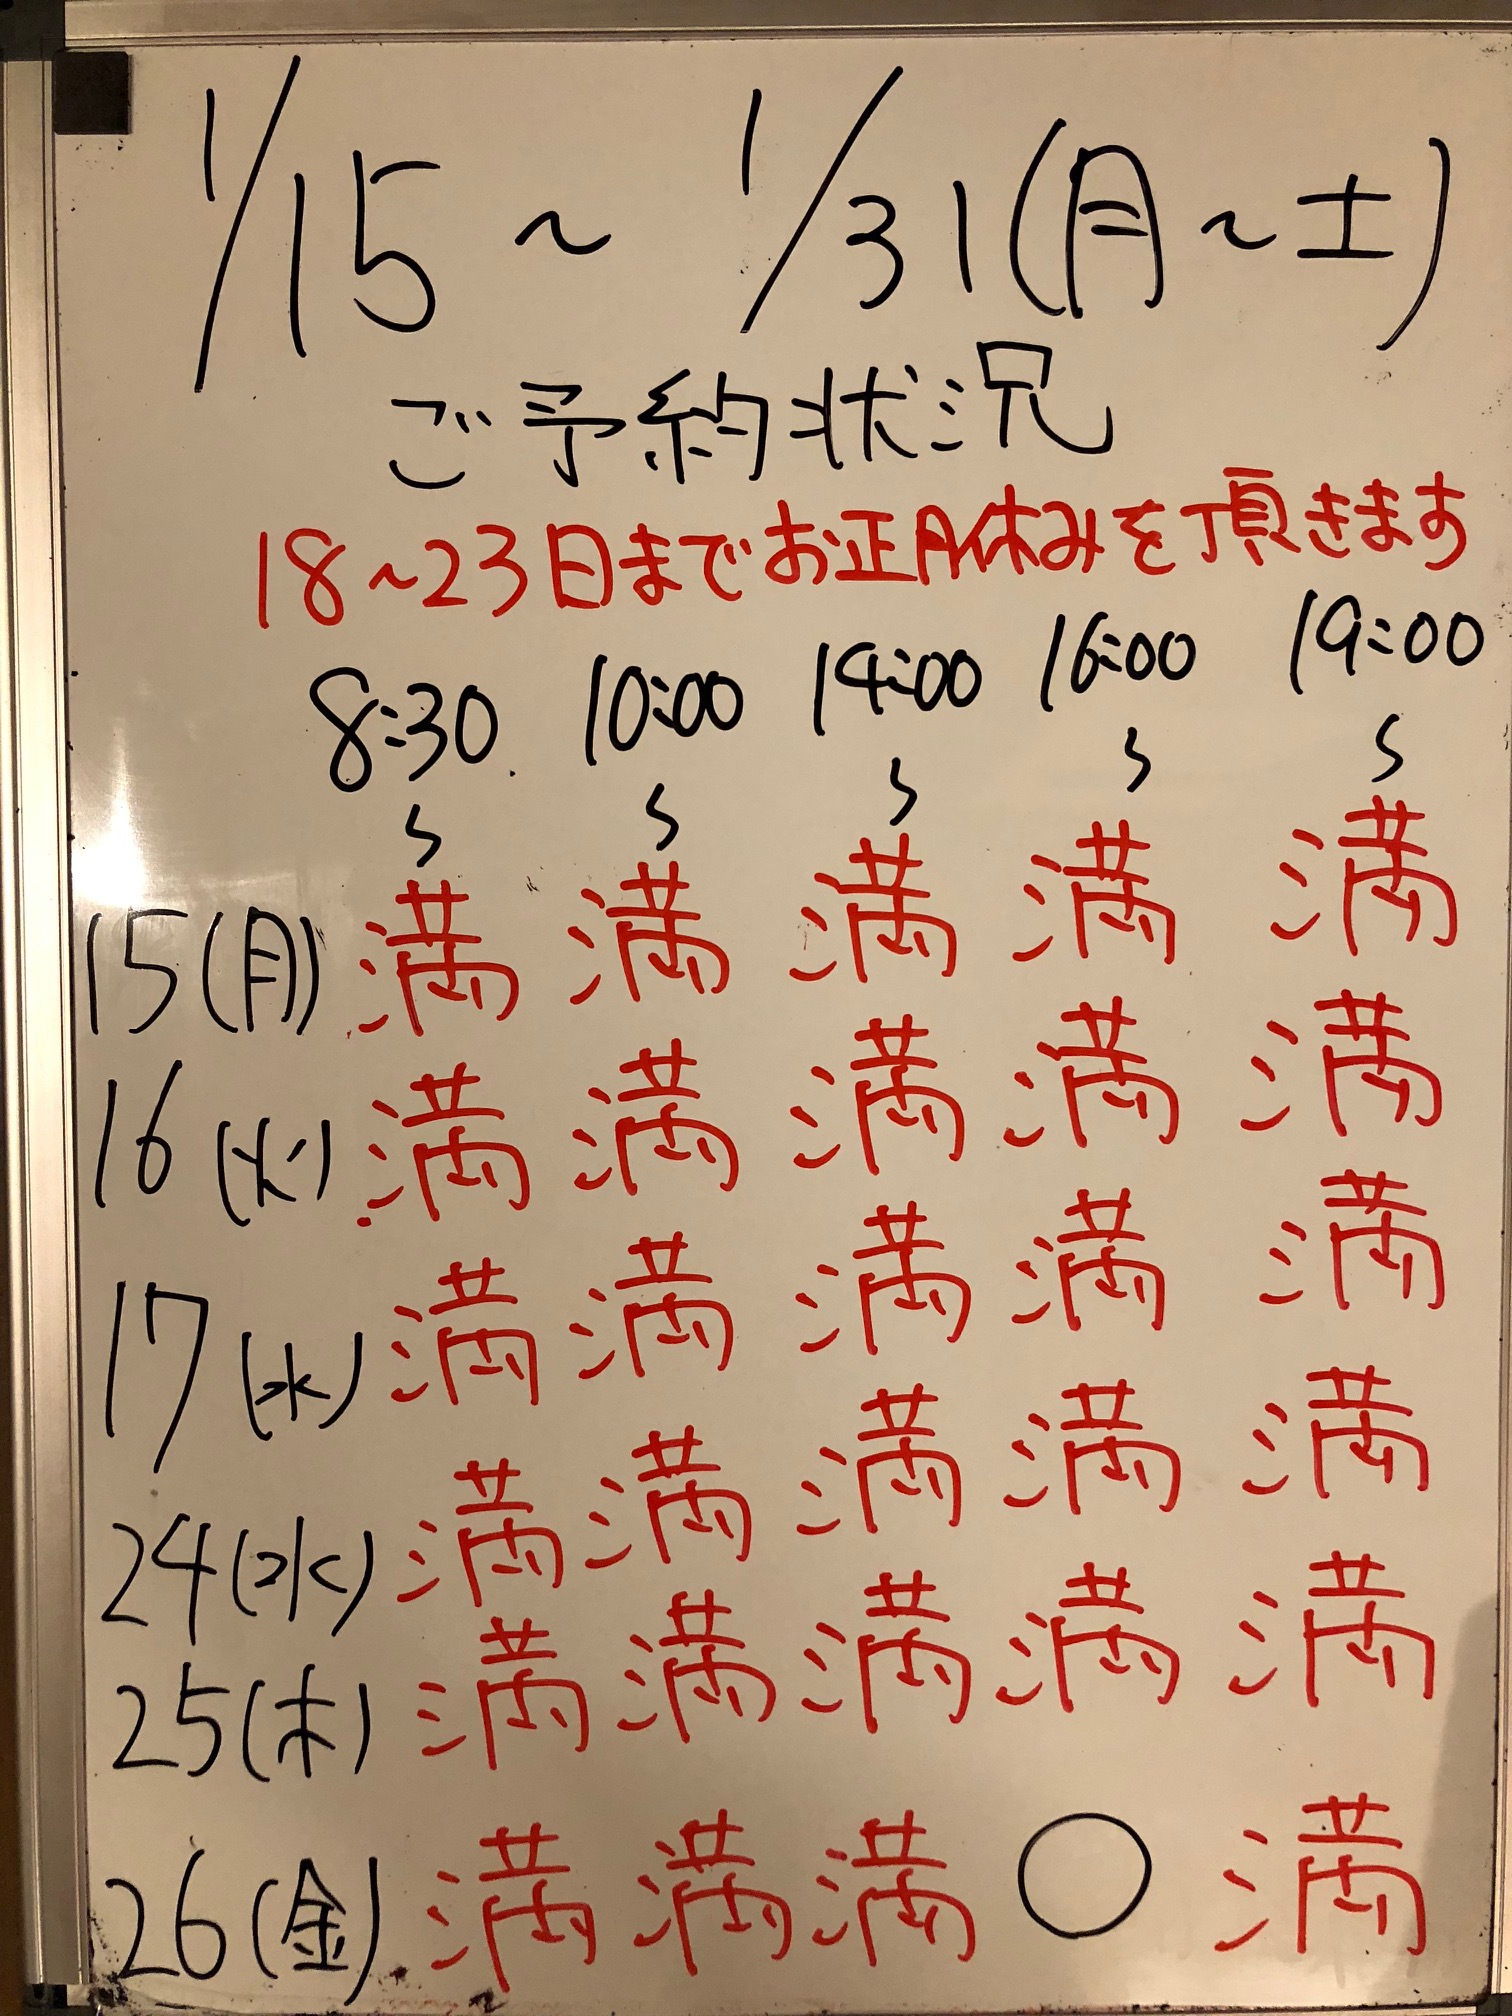 1/15 ~ 1/31(月~土)
ご予約状況
18~23日までお正月休みを頂きます
8:30~ 10:00~ 14:00~ 16:00~ 19:00~
15(月) 満 満 満 満 満
16(火) 満 満 満 満 満
17(水) 満 満 満 満 満
24(水) 満 満 満 満 満
25(木) 満 満 満 満 満
26(金) 満 満 満 ○ 満